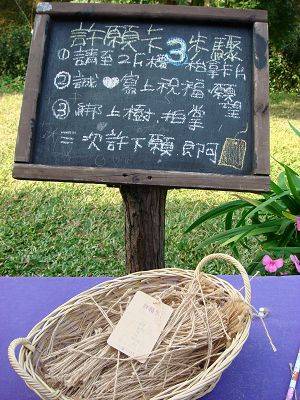 許願卡3步驟
①請至2F櫃檯拿卡片
②誠心寫上祝福、願望
③綁上樹.拍掌
三次許下願.即可
許願卡